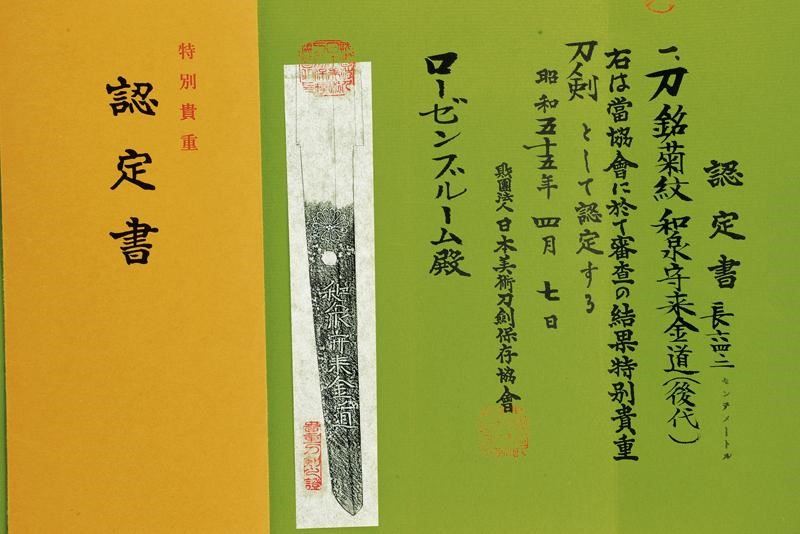 認定書
長六四、二センチメートル
一、刀 銘 菊紋 和泉守来金道(後代)
右は當協會に於て審査の結果特別貴重
刀剣 として認定する
昭和五十五年 四月 七日
財團法人 日本美術刀剣保存協會
ローゼンブルーム殿
和泉守来金道
貴重刀剣之證
特別貴重
認定書